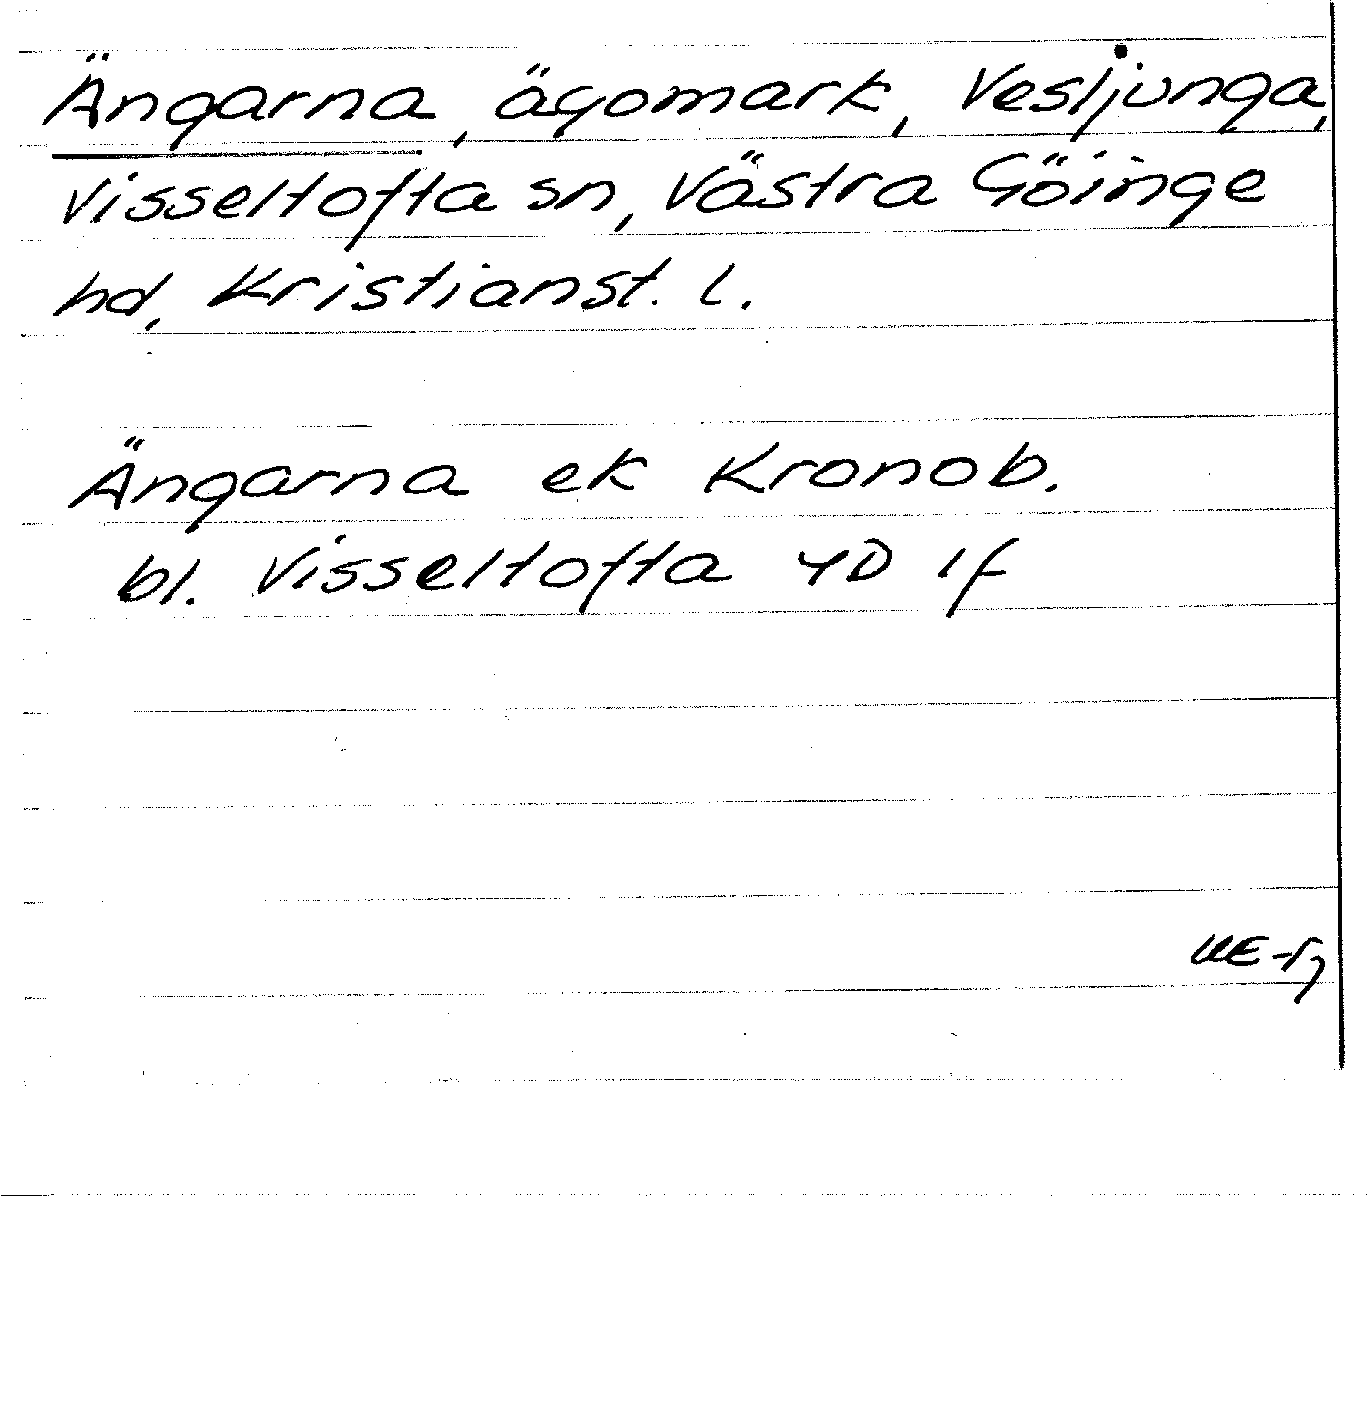 Ängarna, ägomark, Vesljunga,
Visseltofta sn, Västra Göinge
hd, Kristianst. l.
Ängarna ek Kronob.
bl. Visseltofta 4D 1f